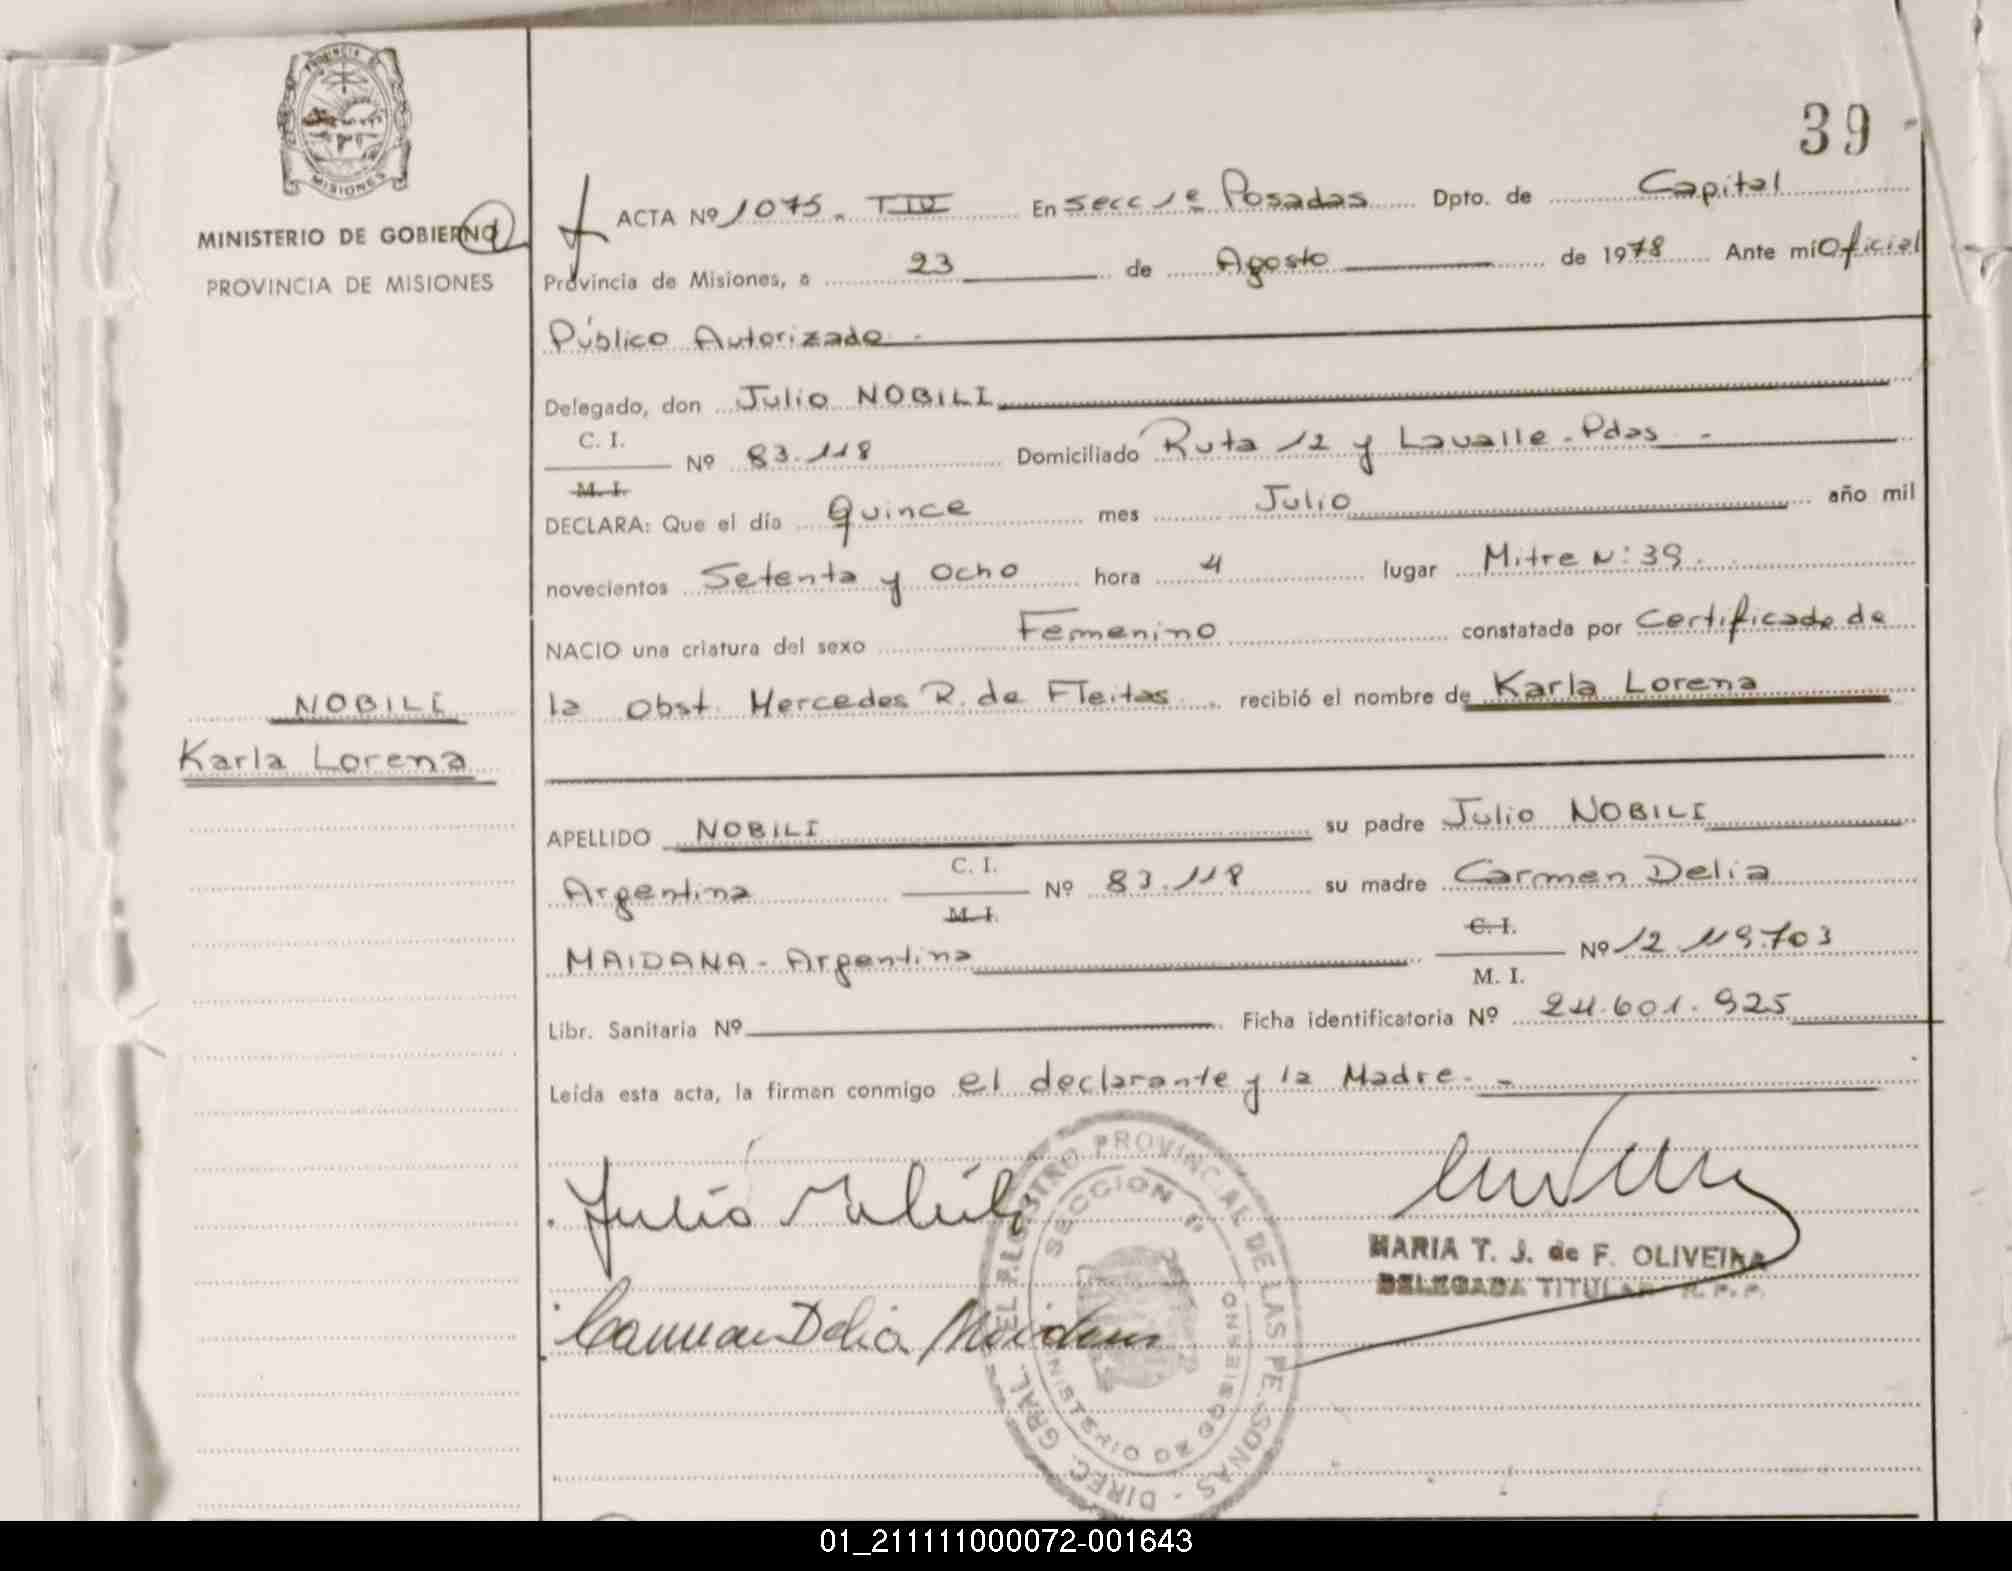 PROVINCIA DE
MISIONES
MINISTERIO DE GOBIERNO
PROVINCIA DE MISIONES
39
ACTA Nº 1075. TIV En secc 1ª Posadas Dpto. de Capital
Provincia de Misiones, a 23 de Agosto de 1978 Ante mi Oficial
Público Autorizado.
Delegado, don Julio NOBILI
C. I.
M. I.
Nº 83.118 Domiciliado Ruta 12 y Lavalle - Pdas -
DECLARA: Que el día Quince mes Julio año mil
novecientos Setenta y Ocho hora 4 lugar Mitre N: 39.
NACIO una criatura del sexo Femenino constatada por Certificado de
la Obst. Mercedes R. de Fleitas. recibió el nombre de Karla Lorena
NOBILI
Karla Lorena
APELLIDO NOBILI su padre Julio NOBILI
Argentina C. I. M. I. Nº 83.118 su madre Carmen Delia
MAIDANA - Argentina C. I. M. I. Nº 12.119.703
Libr. Sanitaria Nº Ficha identificatoria Nº 24.601.925
Leída esta acta, la firman conmigo el declarante y la Madre. -
Julio Nobili
Carmen Delia Maidana
DIREC. GRAL. DEL REGISTRO PROVINCIAL DE LAS PERSONAS -
SECCION 1ª
MARIA T. J. de F. OLIVEIRA
DELEGADA TITULAR R.P.P.
01_211111000072-001643